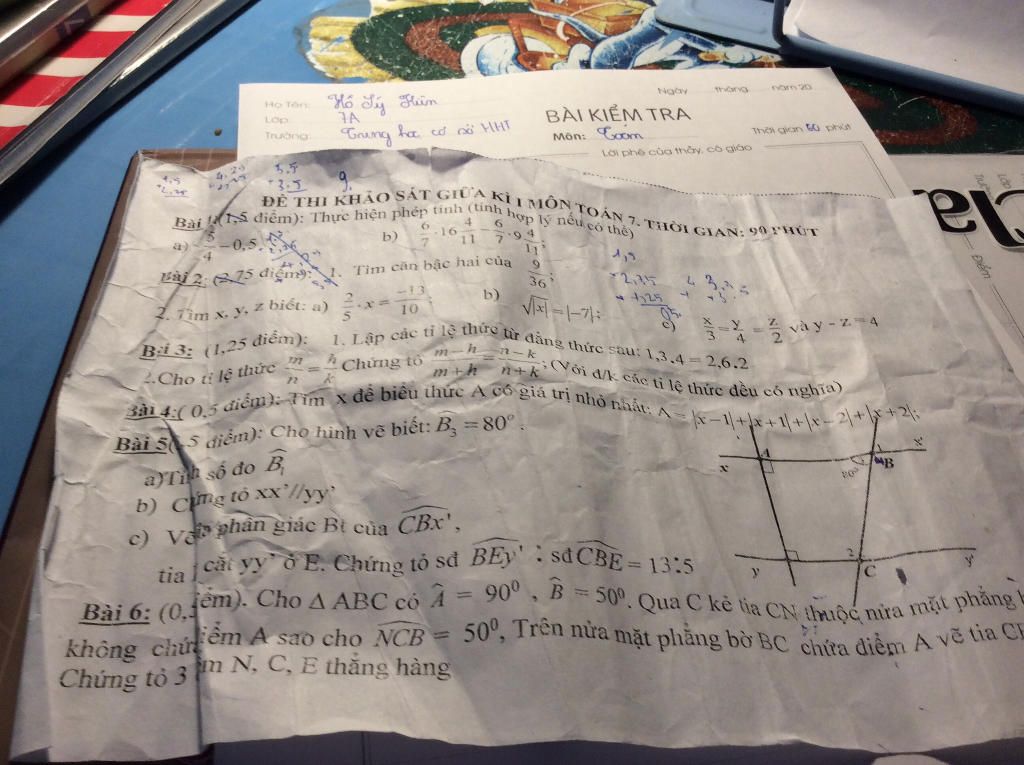 Ngày tháng năm 20
Họ Tên: Hồ Lý
Lớp: 7A
Trường: Trung học cơ sở HHT
BÀI KIỂM TRA
Môn: Toán
Thời gian 60 phút
Lời phê của thầy, cô giáo
ĐỀ THI KHẢO SÁT GIỮA KÌ I MÔN TOÁN 7. THỜI GIAN: 90 PHÚT
Bài 1(1,5 điểm): Thực hiện phép tính (tính hợp lý nếu có thể)
a) 5/4 − 0,5. b) 6/7 · 16 4/11 − 6/7 · 9 4/11;
Bài 2: (2,75 điểm): 1. Tìm căn bậc hai của 9/36;
2. Tìm x, y, z biết: a) 2/5 . x = −13/10; b) √|x| = |−7|; c) x/3 = y/4 = z/2 và y − z = 4
Bài 3: (1,25 điểm): 1. Lập các tỉ lệ thức từ đẳng thức sau: 1,3.4 = 2,6.2
2.Cho tỉ lệ thức m/n = h/k Chứng tỏ (m − h)/(m + h) = (n − k)/(n + k); (Với đ/k các tỉ lệ thức đều có nghĩa)
Bài 4:( 0,5 điểm): Tìm x để biểu thức A có giá trị nhỏ nhất: A = |x − 1| + |x + 1| + |x − 2| + |x + 2|;
Bài 5( ,5 điểm): Cho hình vẽ biết: B̂₃ = 80°.
a)Tính số đo B̂₁
b) Chứng tỏ xx'//yy'
c) phân giác Bt của CBx',
tia cắt yy' ở E. Chứng tỏ sđ BEy' : sđ CBE = 13:5
x A B x'
80°
y 2 C y'
Bài 6: (0, điểm). Cho Δ ABC có Â = 90⁰, B̂ = 50⁰. Qua C kẻ tia CN thuộc nửa mặt phẳng
không chứa điểm A sao cho NCB = 50⁰, Trên nửa mặt phẳng bờ BC chứa điểm A vẽ tia
Chứng tỏ 3 N, C, E thẳng hàng